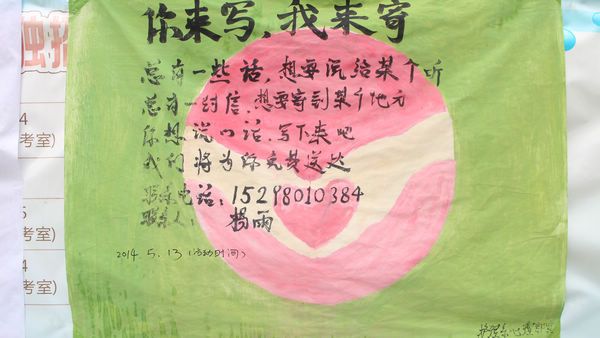 你来写，我来寄
总有一些话，想要说给某个听
总有一封信，想要寄到某个地方
你想说的话，写下来吧
我们将为你免费送达
联系电话：15298010384
联系人：杨雨
2014.5.13（活动时间）
4
考室)
5
考室)
4
考室)